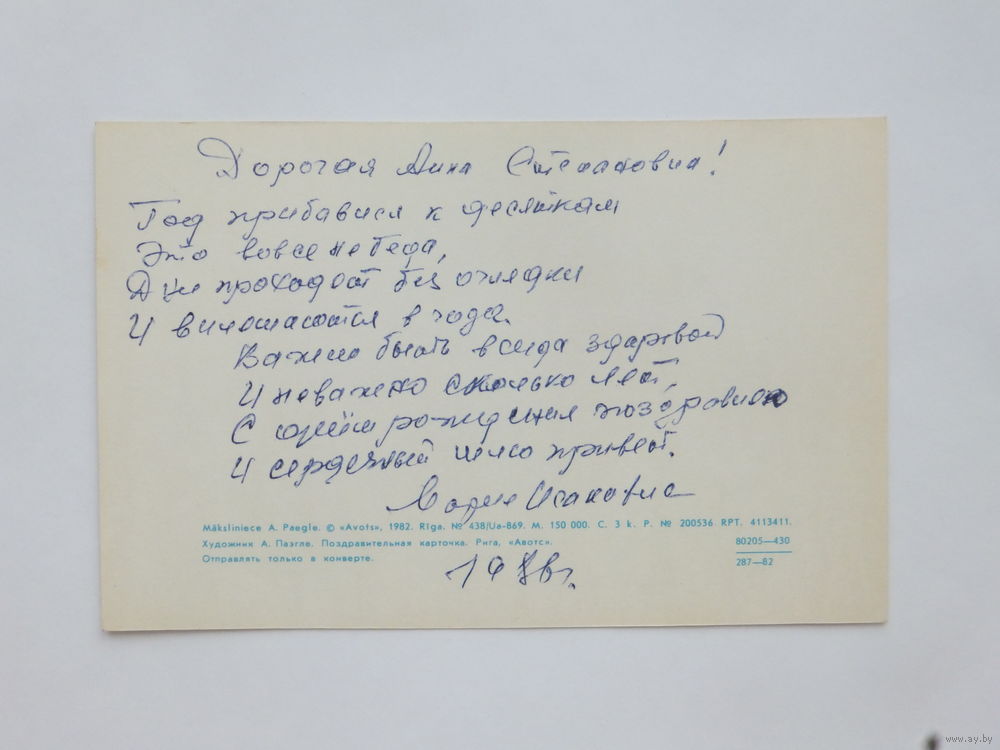 Дорогая Анна Степановна!
Год прибавился к десяткам
Это вовсе не беда,
Дни проходят без оглядки
И вплетаются в года.
Важно быть всегда здоровой
И неважно сколько лет,
С днём рождения поздравляю
И сердечный шлю привет.
Мария Исаковна
Māksliniece A. Paegle. © «Avots», 1982. Rīga. № 438/Ua-869. M. 150 000. C. 3 k. P. № 200536. RPT. 4113411.
Художник А. Паэгле. Поздравительная карточка. Рига, «Авотс».
80205—430
Отправлять только в конверте.
287—82
www.ay.by